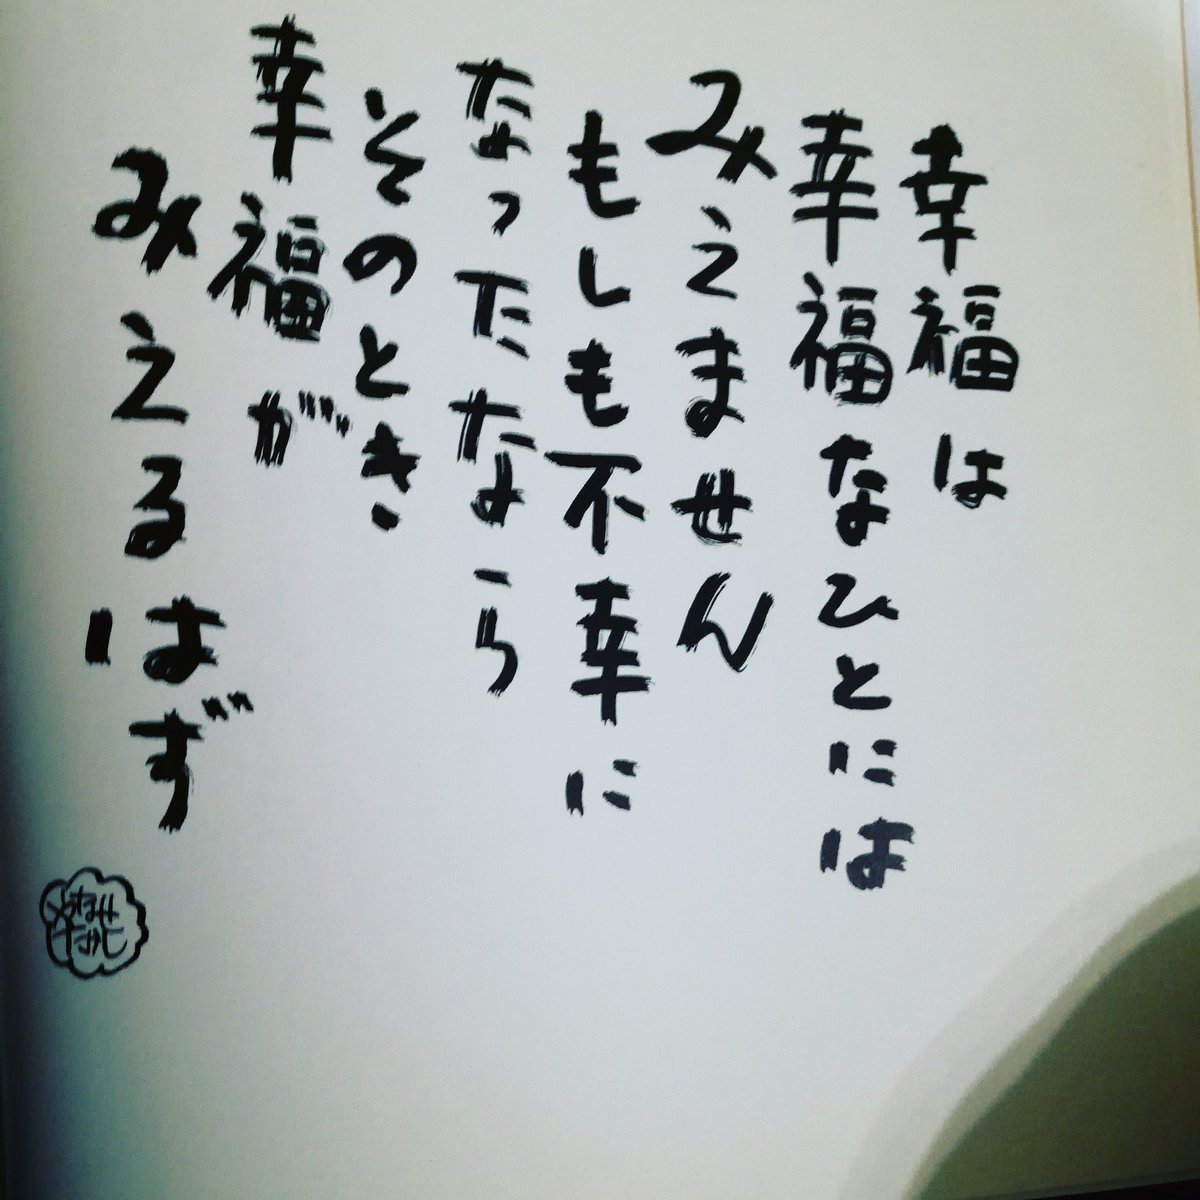 幸福は
幸福なひとには
みえません
もしも不幸に
なったなら
そのとき
幸福が
みえるはず
やなせ
たかし